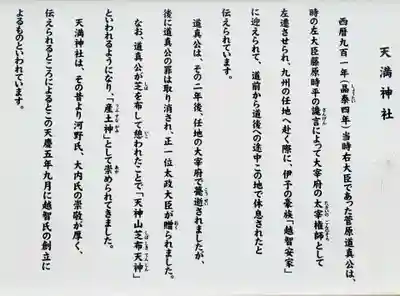 天満神社
西暦九百一年（昌泰四年）当時右大臣であった菅原道真公は、
時の左大臣藤原時平の讒言によって大宰府の太宰権師として
左遷させられ、九州の任地へ赴く際に、伊予の豪族「越智安家」
に迎えられて、道前から道後への途中この地で休息されたと
伝えられています。
道真公は、その二年後、任地の大宰府で薨逝されましたが、
後に道真公の罪は取り消され、正一位太政大臣が贈られました。
なお、道真公が芝を布して憩われたことで「天神山芝布天神」
といわれるようになり、「産土神」として崇められてきました。
天満神社は、その昔より河野氏、大内氏の崇敬が厚く、
伝えられるところによるとこの天慶五年九月に越智氏の創立に
よるものといわれています。